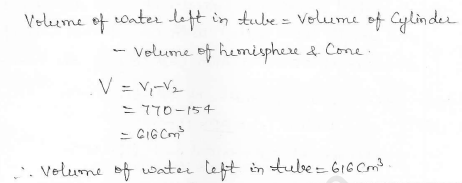 Volume of water left in tube = Volume of Cylinder
- Volume of hemisphere & Cone.
V = V₁-V₂
= 770-154
= 616 Cm³
∴ Volume of water left in tube = 616 Cm³.